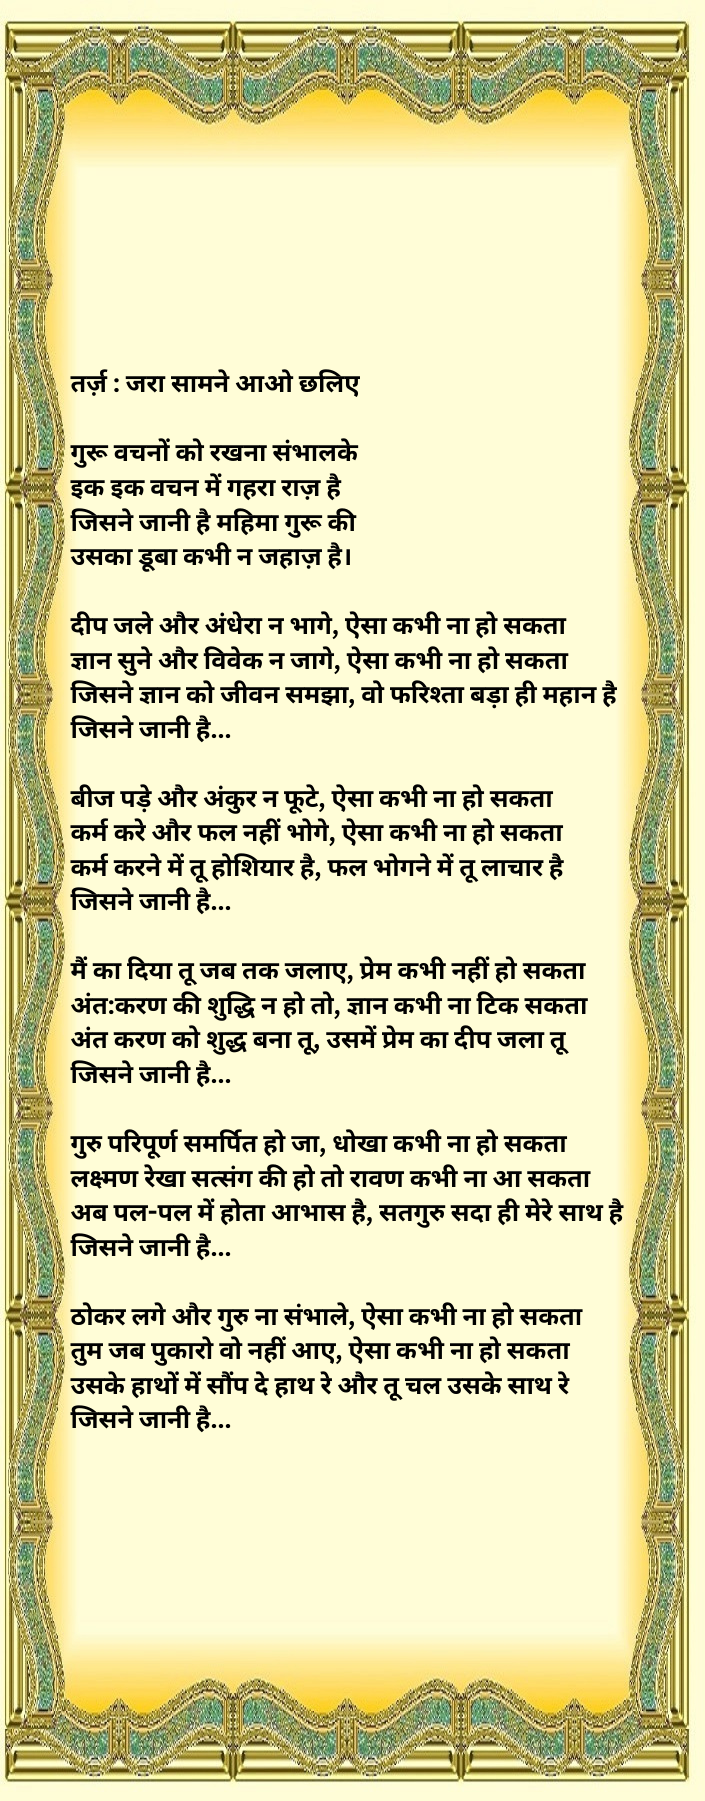 तर्ज़ : जरा सामने आओ छलिए
गुरू वचनों को रखना संभालके
इक इक वचन में गहरा राज़ है
जिसने जानी है महिमा गुरू की
उसका डूबा कभी न जहाज़ है।
दीप जले और अंधेरा न भागे, ऐसा कभी ना हो सकता
ज्ञान सुने और विवेक न जागे, ऐसा कभी ना हो सकता
जिसने ज्ञान को जीवन समझा, वो फरिश्ता बड़ा ही महान है
जिसने जानी है...
बीज पड़े और अंकुर न फूटे, ऐसा कभी ना हो सकता
कर्म करे और फल नहीं भोगे, ऐसा कभी ना हो सकता
कर्म करने में तू होशियार है, फल भोगने में तू लाचार है
जिसने जानी है...
मैं का दिया तू जब तक जलाए, प्रेम कभी नहीं हो सकता
अंत:करण की शुद्धि न हो तो, ज्ञान कभी ना टिक सकता
अंत करण को शुद्ध बना तू, उसमें प्रेम का दीप जला तू
जिसने जानी है...
गुरु परिपूर्ण समर्पित हो जा, धोखा कभी ना हो सकता
लक्ष्मण रेखा सत्संग की हो तो रावण कभी ना आ सकता
अब पल-पल में होता आभास है, सतगुरु सदा ही मेरे साथ है
जिसने जानी है...
ठोकर लगे और गुरु ना संभाले, ऐसा कभी ना हो सकता
तुम जब पुकारो वो नहीं आए, ऐसा कभी ना हो सकता
उसके हाथों में सौंप दे हाथ रे और तू चल उसके साथ रे
जिसने जानी है...